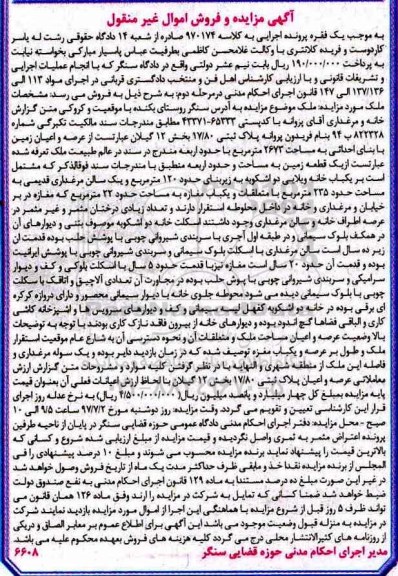 آگهی مزایده و فروش اموال غیر منقول
به موجب یک فقره پرونده اجرایی به کلاسه ۹۷۰۱۷۴ صادره از شعبه ۱۴ دادگاه حقوقی رشت له یاسر
کاردوست و فریده کلانتری با وکالت غلامحسن کاظمی بطرفیت عباس پاسیار مبارکی بخواسته نیابت
به پرداخت ۱۹۰/۰۰۰/۰۰۰ ریال بابت نیم عشر دولتی واقع در دادگاه سنگر که با انجام عملیات اجرایی
و تشریفات قانونی و با ارزیابی کارشناس اهل فن و منتخب دادگستری قربانی در اجرای مواد ۱۱۳ الی
۱۳۷/۱۳۶ الی ۱۴۷ قانون اجرای احکام مدنی درمرحله دوم، به شرح ذیل به فروش می رسد: مشخصات
ملک مورد مزایده: ملک موضوع مزایده به آدرس سنگر روستای یکنده با موقعیت و کروکی متن گزارش
خانه و مرغداری آقای پروانه با کدپستی ۶۵۳۳۳-۴۳۳۷۱ مطابق مندرجات سند مالکیت تکبرگی شماره
۸۲۲۳۲۸ ب ۹۴ بنام فریدون پروانه پلاک ثبتی ۱۷/۸۰ بخش ۱۲ گیلان عبارتست از عرصه و اعیان زمین
با بنای احداثی به مساحت ۲۶۷۳ مترمربع با حدود اربعه مندرج در سند در عالم طبیعت ملک تعرفه شده
عبارتست ازیک قطعه زمین به مساحت و حدود اربعه منطبق با مندرجات سند فوقالذکر که مشتمل
است بر یکباب خانه ویلایی دو اشکوبه به زیربنای حدود ۱۲۰ مترمربع و یک سالن مرغداری قدیمی به
مساحت حدود ۲۳۵ مترمربع با متعلقات و یکباب مغازه به مساحت حدود ۲۲ مترمربع که مغازه در بر
خیابان و مرغداری و خانه در داخل محوطه استقرار دارند و تعداد زیادی درختان مثمر و غیر مثمر در
عرصه اطراف خانه و سالن مرغداری وجود داشتند اسکلت خانه دو اشکوبه موصوف بتنی و دیوارهای آن
در همکف بلوک سیمانی و در طبقه اول آجری با سربندی شیروانی چوبی با پوشش حلب بوده قدمت آن
زیر ده سال است سالن مرغداری با اسکلت بلوک سیمانی و سربندی شیروانی چوبی با پوشش ایرانیت
بوده و قدمت آن حدود ۲۰ سال است مغازه نیز با قدمت حدود ۵ سال با اسکلت بلوکی و کف و دیوار
سرامیکی و سربندی شیروانی چوبی با پوش حلب بوده در مجاورت آن تعدادی آلاچیق و اتاقک با اسکلت
چوبی با بلوک سیمانی دیده می شود محوطه جلوی خانه با دیوار سیمانی محصور و دارای دروازه کرکره
ای برقی بوده در خانه دو اشکوبه کفهال لیسه سیمانی و کف و دیوارهای سرویس ها و آشپزخانه کاشی
کاری و الباقی فضاها گچ اندود بوده و دیوارهای خانه از بیرون فاقد نازک کاری بودند با توجه به توضیحات
بالا وضعیت عرصه و اعیان مساحت ملک و متعلقات آن و نحوه دسترسی آن به شارع عام موقعیت استقرار
ملک و طول بر عرصه و یکباب مغزه توصیف شده که در زمان بازدید دایر بوده و یک سوله مرغداری و
فاصله این ملک از منطقه شهری و النهایه با در نظر گرفتن کلیه موارد و مشروحات متن گزارش ارزش
معاملاتی عرصه و اعیان پلاک ثبتی ۱۷/۸۰ بخش ۱۲ گیلان با لحاظ ارزش اعیانات فعلی آن بعنوان قیمت
پایه مزایده بمبلغ کل چهار میلیارد و پانصد میلیون ریال(۴/۵۰۰/۰۰۰/۰۰۰ ریال) به نرخ عدله روز اجرای
قرار این کارشناسی تعیین و تقویم می گردد. وقت مزایده: روز دوشنبه مورخ ۹۷/۷/۲ ساعت ۹/۵ الی ۱۰
صبح - محل مزایده: دفتر اجرای احکام مدنی دادگاه عمومی حوزه قضایی سنگر در پایان از ناحیه طرفین
پرونده اعتراض مثمر به ثمری واصل نگردیده و قیمت مزایده از مبلغ ارزیابی شده شروع و کسانی که
بالاترین قیمت را پیشنهاد نماید برنده مزایده محسوب می شوند و مبلغ ۱۰ درصد پیشنهادی را فی
المجلس از برنده مزایده نقدا اخذ و مابقی ظرف حداکثر مدت یک ماه از تاریخ فروش وصول خواهد شد
در غیر این صورت مبلغ ده درصد مستندا به ماده ۱۲۹ قانون اجرای احکام مدنی به نفع صندوق دولت
ضبط خواهد شد ضمنا کسانی که تمایل به شرکت در مزایده را ارند وفق ماده ۱۲۶ همان قانون می
تواند ظرف ۵ روز قبل از شروع مزایده با هماهنگی این اجرا از اموال مورد مزایده بازدید نمایند شرکت
در مزایده به منزله قبول وضعیت موجود می باشد این آگهی برای اطلاع عموم بر معابر الصاق و دریکی
از روزنامه های کثیرالانتشار محلی درج می گردد کلیه هزینه های فروش بعهده محکوم علیه می باشد
مدیر اجرای احکام مدنی حوزه قضایی سنگر
۶۶۰۸